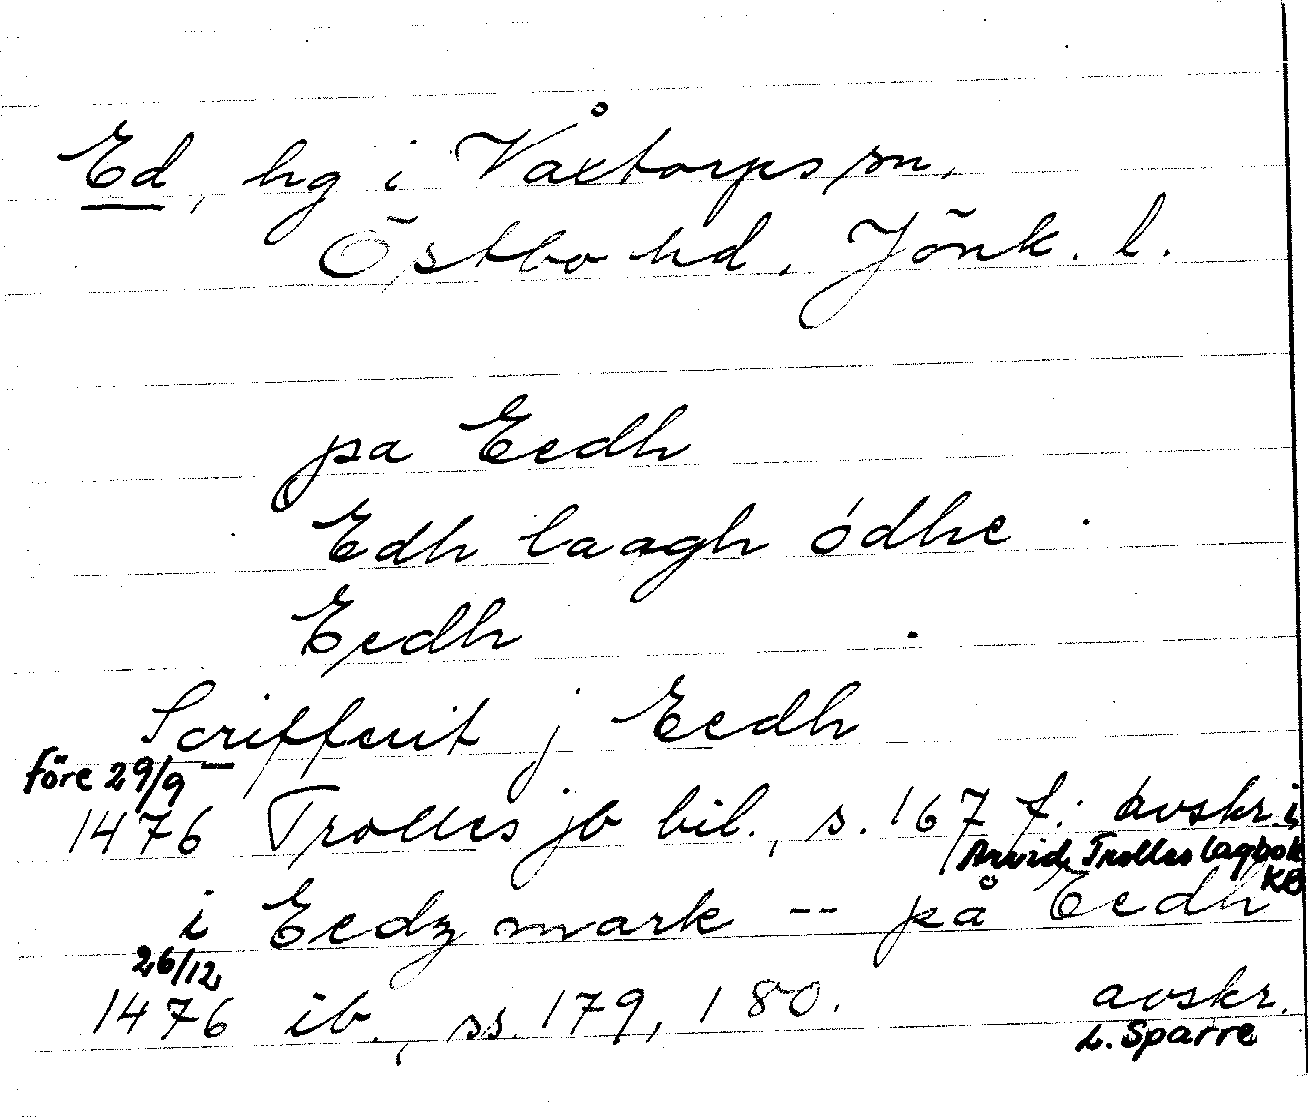 Ed, hg i Våxtorps sn,
Östbo hd, Jönk. l.
pa Eedh
Edh laagh ódhe
Eedh
Scriffuit j Eedh
före 29/9
1476 Trolles jb bil., s. 167 f: avskr i
Arvid Trolles lagbok
KB
i Eedz mark -- på Eedh
26/12
1476 ib., ss. 179, 180. avskr.
L. Sparre